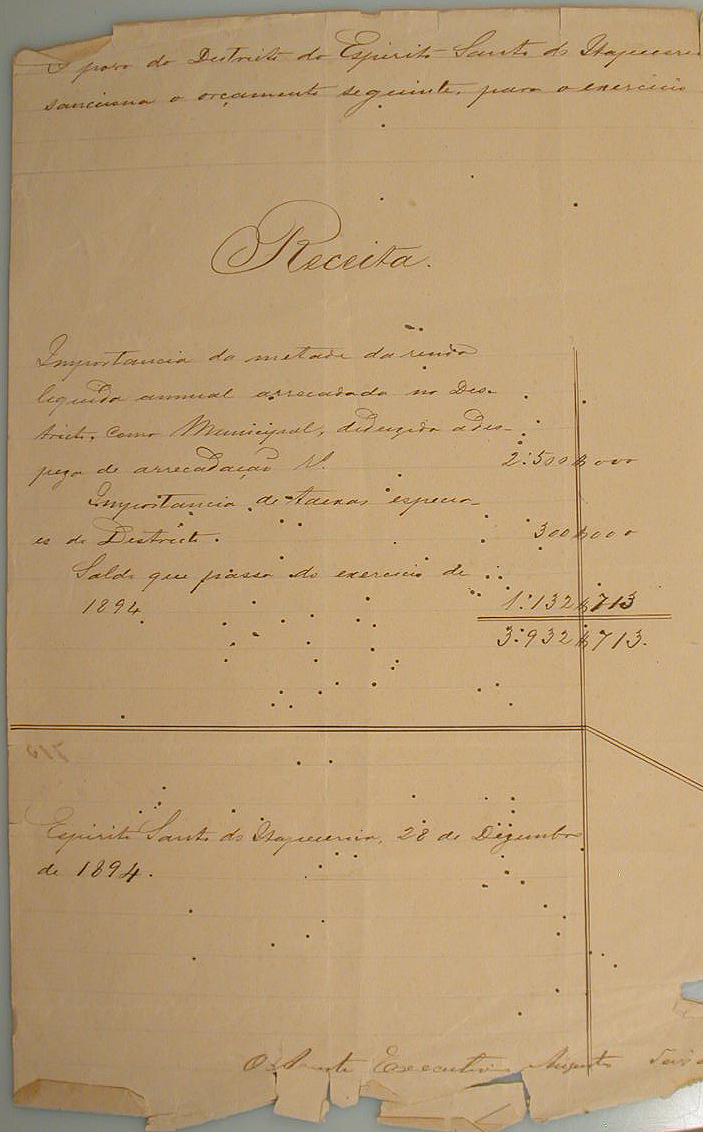 O povo do Districto do Espirito Santo do Itapecerica
sancciona o orçamento seguinte, para o exercicio
Receita.
Importancia da metade da renda
liquida annual arrecadada no Dis-
tricto, como Municipal, deduzida a des-
peza de arrecadação
2:500$000
Importancia de taxas especia-
es do Districto.
300$000
Saldo que passa do exercicio de
1894
1:132$713
3:932$713.
Espirito Santo do Itapecerica, 28 de Dezembro
de 1894.
O Agente Executivo Augusto